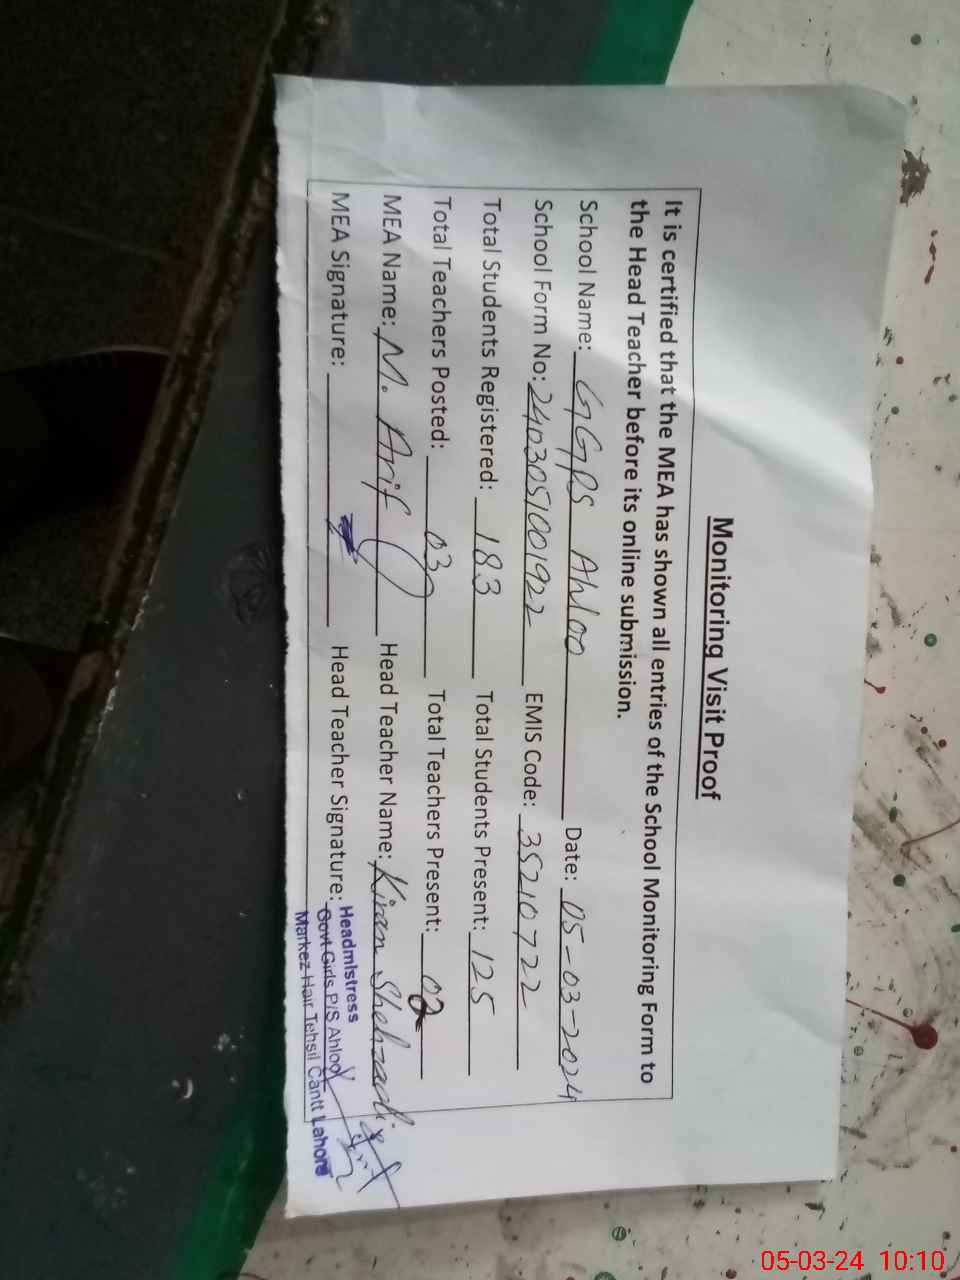 Monitoring Visit Proof
It is certified that the MEA has shown all entries of the School Monitoring Form to
the Head Teacher before its online submission.
School Name: GGPS Ahloo Date: 05-03-2024
School Form No: 2403051001922 EMIS Code: 35210722
Total Students Registered: 183 Total Students Present: 125
Total Teachers Posted: 03 Total Teachers Present: 02
MEA Name: M. Arif Head Teacher Name: Kiran Shehzadi
MEA Signature: Head Teacher Signature:
Headmistress
Govt Girls P/S Ahloo
Markez Hair Tehsil Cantt Lahore
05-03-24 10:10